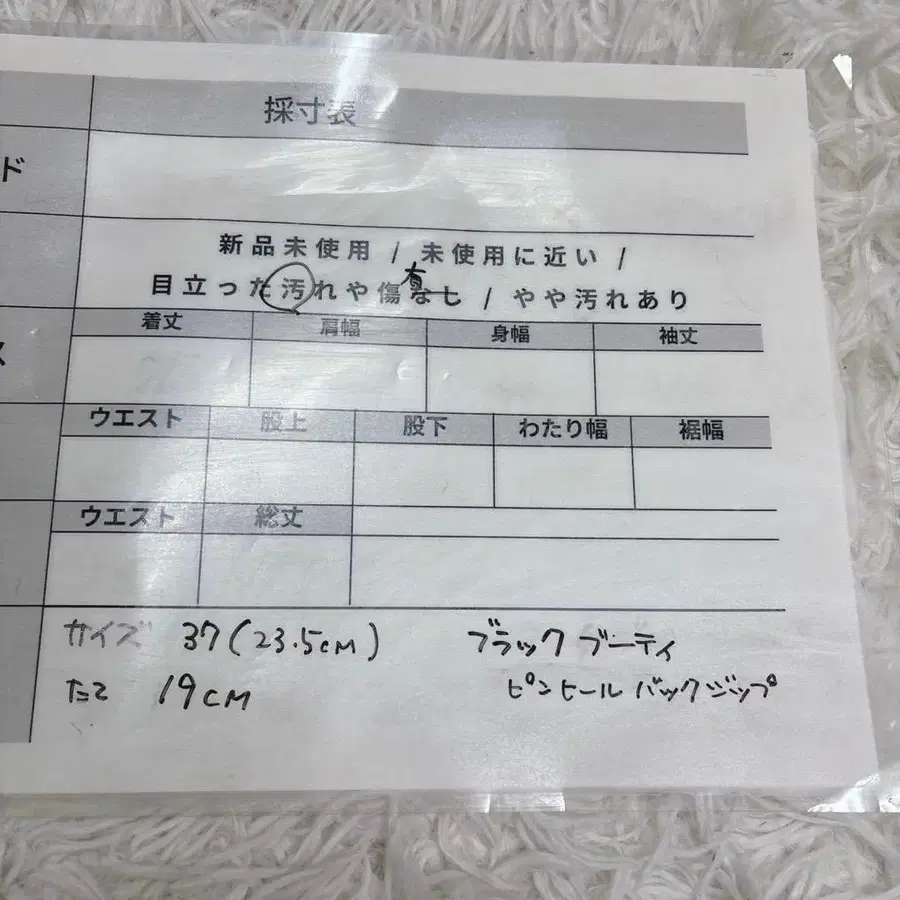 採寸表
ド
新品未使用 / 未使用に近い /
有
目立った汚れや傷なし / やや汚れあり
着丈 肩幅 身幅 袖丈
ス
ウエスト 股上 股下 わたり幅 裾幅
ウエスト 総丈
サイズ 37(23.5cm) ブラック ブーティ
たて 19cm ピンヒール バックジップ